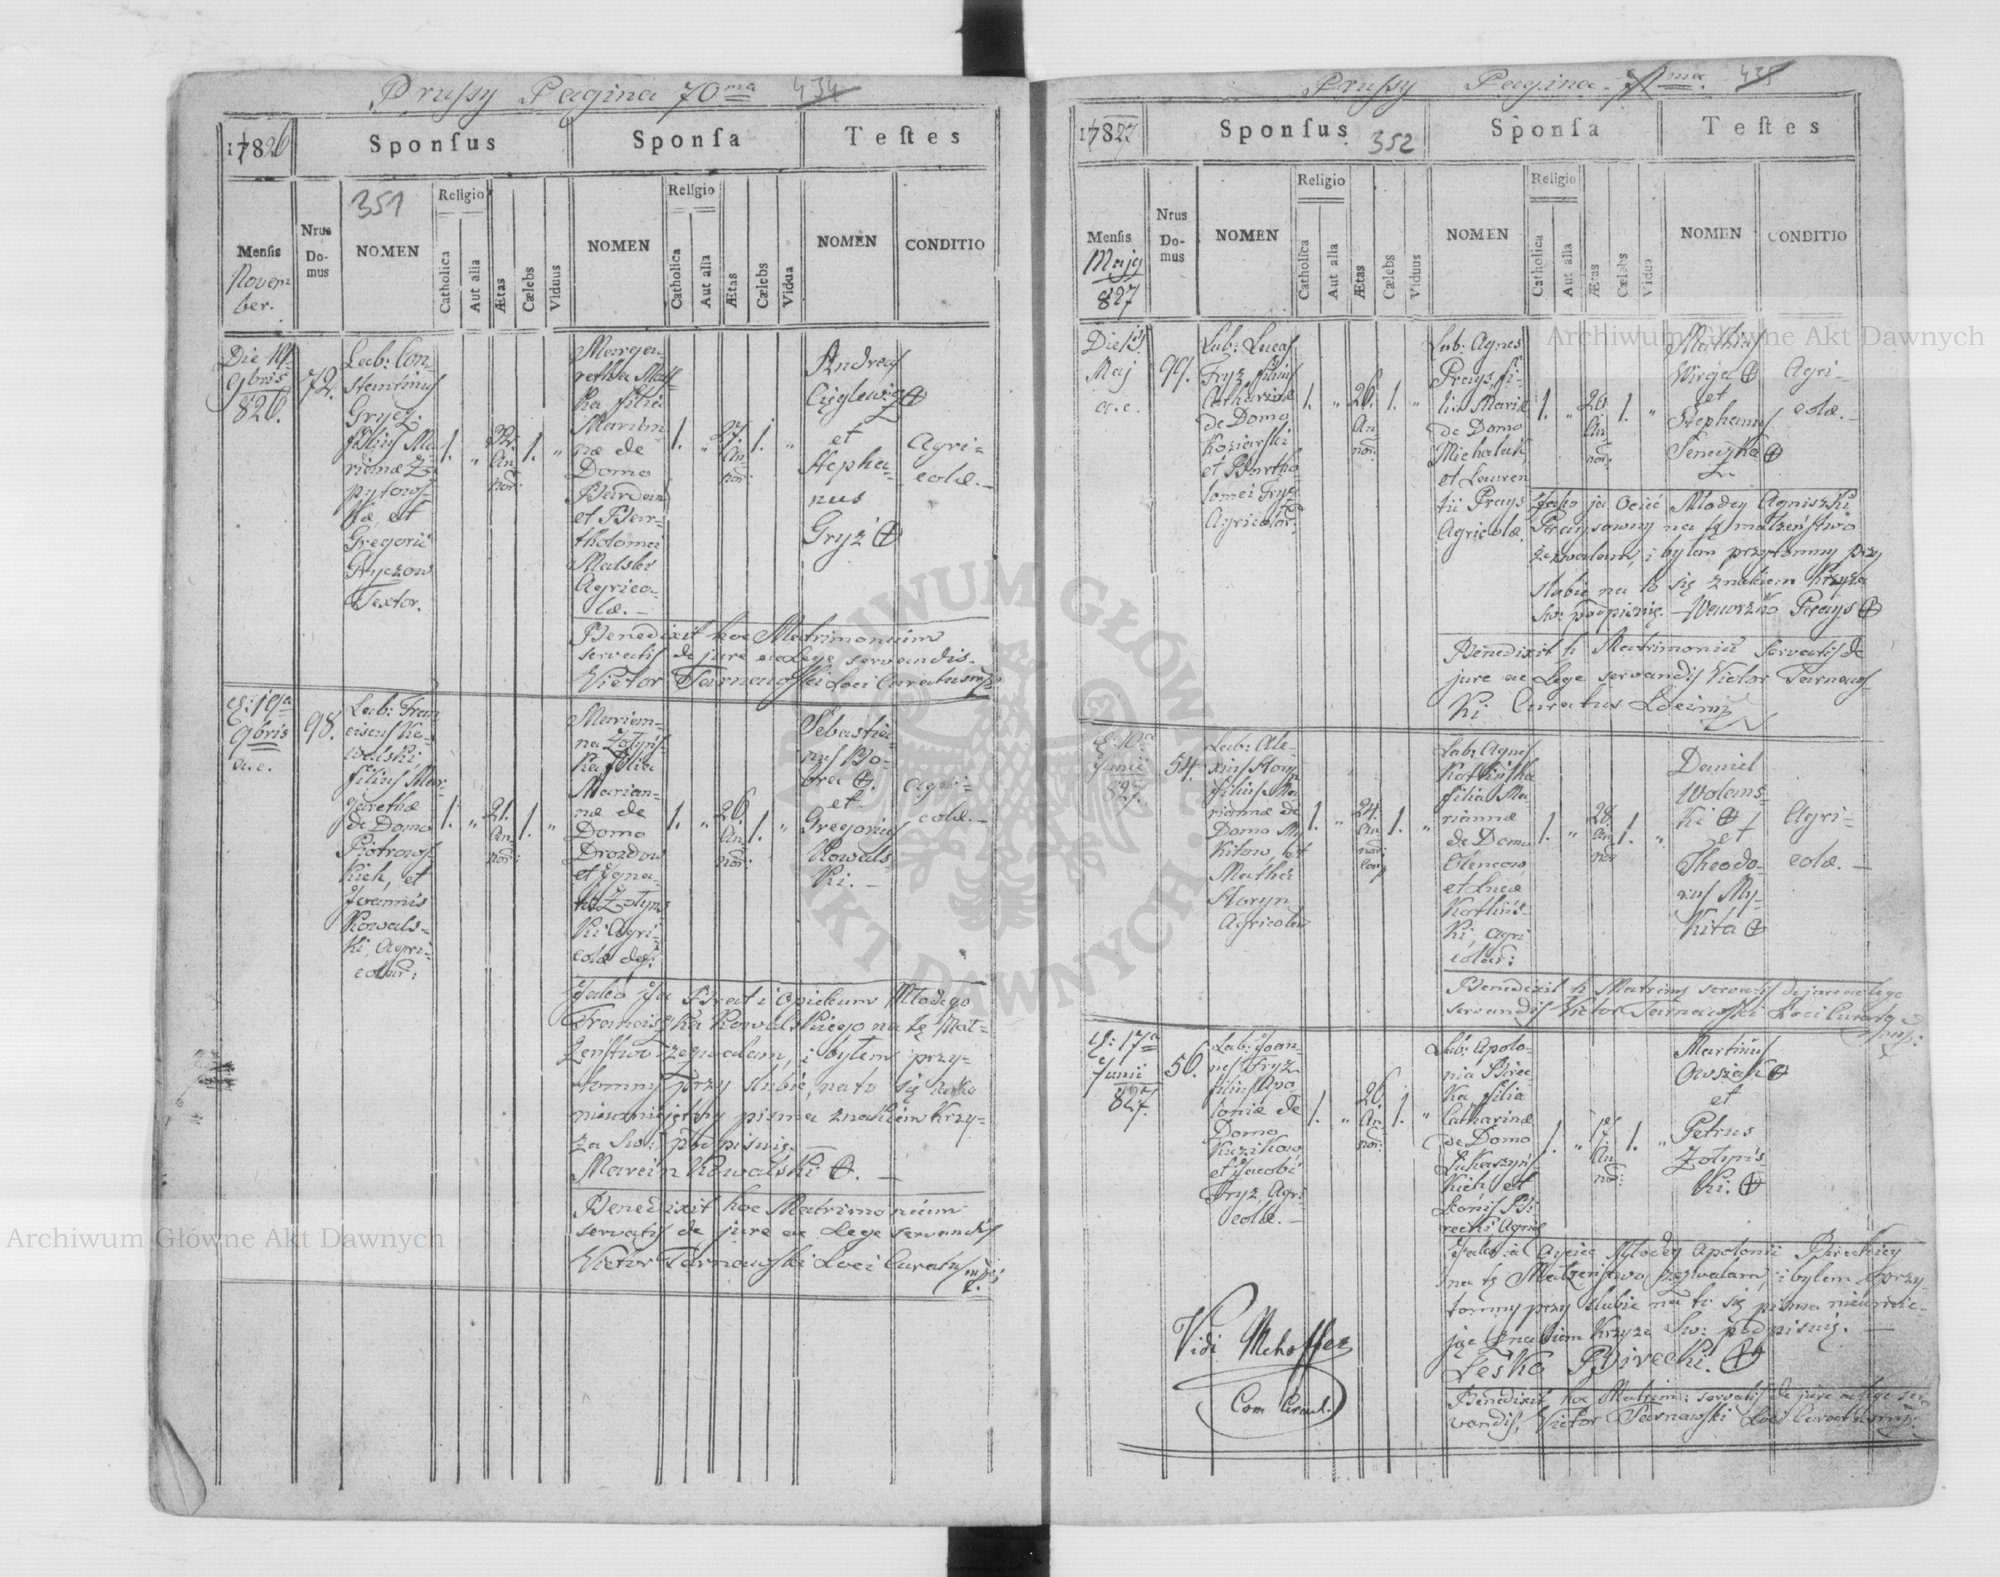 Prussy Pagina 70ma 434
1826 Sponsus Sponsa Testes
351
Mensis Novem
ber.
Nrus Do-
mus
NOMEN
Religio
Catholica
Aut alia
Ætas
Cælebs
Viduus
NOMEN
Religio
Catholica
Aut alia
Ætas
Cælebs
Vidua
NOMEN
CONDITIO
Die 19
9bris
826.
72.
Lab: Con-
stantinus
Grycz.
filius Ma-
rianæ
et
Gregorii
Gryczow
Textor.
1. „ 22. An
nor: 1. „
Marga-
retha Mals-
ka filia
Marian-
næ de
Domo
et Bar-
tholomei
Malski
Agrico-
læ. –
1. „ 27. An
nor: 1. „
Andreas
et
Stepha-
nus
Gryz
Agri-
colæ. –
Benedixit hoc Matrimonium
servatis de jure ac Lege servandis.
Victor Tarnawski Loci Curatus mp
d: 19a
9bris
a.c.
98.
Lab: Fran-
ciscus Ko-
walski
filius Mar-
garethæ
de Domo
Piotrows-
kich, et
Joannis
Kowals-
ki, Agri-
colar:
1. „ 21. An
nor: 1. „
Marian-
na Zołyńs-
ka filia
Marian-
næ de
Domo
Drozdow
et Igna-
tii Zołyńs-
ki Agri-
colæ def:
1. „ 26. An
nor: 1. „
Sebastia-
nus Bo-
bra
et
Gregorius
Kowals-
ki. –
Agri-
colæ. –
Jako Ja Brat i Opiekun Młodego
Franciszka Kowalskiego na tę Mał-
żeństwo zezwalam, i byłem przy-
tomny przy slubie, na to się jako
nieumiejętny pisma znakiem Krzy-
ża Sw: podpisuię.
Marcin Kowalski. –
Benedixit hoc Matrimonium
servatis de jure ac Lege servandis
Victor Tarnawski Loci Curatus mp:
Prussy Pagina 71ma. 435
1827 Sponsus 352 Sponsa Testes
Mensis
Maij
827
Nrus
Do-
mus
NOMEN
Religio
Catholica
Aut alia
Ætas
Cælebs
Viduus
NOMEN
Religio
Catholica
Aut alia
Ætas
Cælebs
Vidua
NOMEN
CONDITIO
Maj
a.c.
99.
Lab: Lucas
Fryz filius
Catharinæ
de Domo
Koziarski
et Bartho
lomei Fryz
Agricolor:
1. „ 26. An
nor: 1. „
Lab: Agnes
Prays fi-
lia Mariæ
de Domo
Michalak,
et Lauren
tii Prays
Agricolæ.
1. „ 20. An
nor: 1. „
Mathias
Wręga
et
Stephanus
Agri-
colæ. –
Jako ja Ociec Młodey Agniszki
Praysowny na tę małżeństwo
zezwalam, i byłem przytomny przy
slubie na to się znakiem Krzyża
Sw: podpisuię. – Wawrzko Prays
Benedixit h Matrimoniū servatis de
jure ac Lege servandis Victor Tarnaws-
ki Curatus Loci mp
d: 10a
Junii
827.
54.
Lab: Ale-
xius Horyn
filius Ma-
riannæ de
Domo My-
kitow et
Mathei
Horyn
Agricolar
1. „ 24. An
nor: 1. „
Lab: Agnes
Kotlińska
filia Ma-
riannæ
de Domo
Olencow
et Lucæ
Kotlińs-
ki Agri
colar:
1. „ 28. An
nor 1. „
Daniel
Wolans-
ki
et
Theodo-
rus My-
kita
Agri-
colæ. –
Benedixit h Matrim servatis de jure ac lege
servandis Victor Tarnawski Loci Curatus
mp:
d: 17a
Junii
827.
56.
Lab: Joan-
nes Fryz
filius Apo-
loniæ de
Domo
Kuzikow
et Jacobi
Fryz Agri-
colæ. –
1. „ 26. An
nor: 1. „
Lab: Apolo-
nia Birec-
ka, filia
Catharinæ
de Domo
Łukaszyńs-
kich et
Leonis Bi-
recki Agricolæ
1. „ 17. An
nor: 1. „
Martinus
Owsiak
et
Petrus
Zołyńs-
ki.
Jako ja Ociec Młodey Apolonii Bireckiey
na tę Małżeństwo zezwalam, i byłem przy-
tomny przy slubie na to się pisma nieumie-
jąc znakiem Krzyża Sw: podpisuię. –
Leśko Birecki.
Benedixit hoc Matrim: servatis de jure ac lege ser-
vandis, Victor Tarnawski Loci Curatus mp:
Vidi Mehoffer
Com. Circul.
Archiwum Główne Akt Dawnych
Archiwum Główne Akt Dawnych
ARCHIWUM GŁÓWNE AKT DAWNYCH